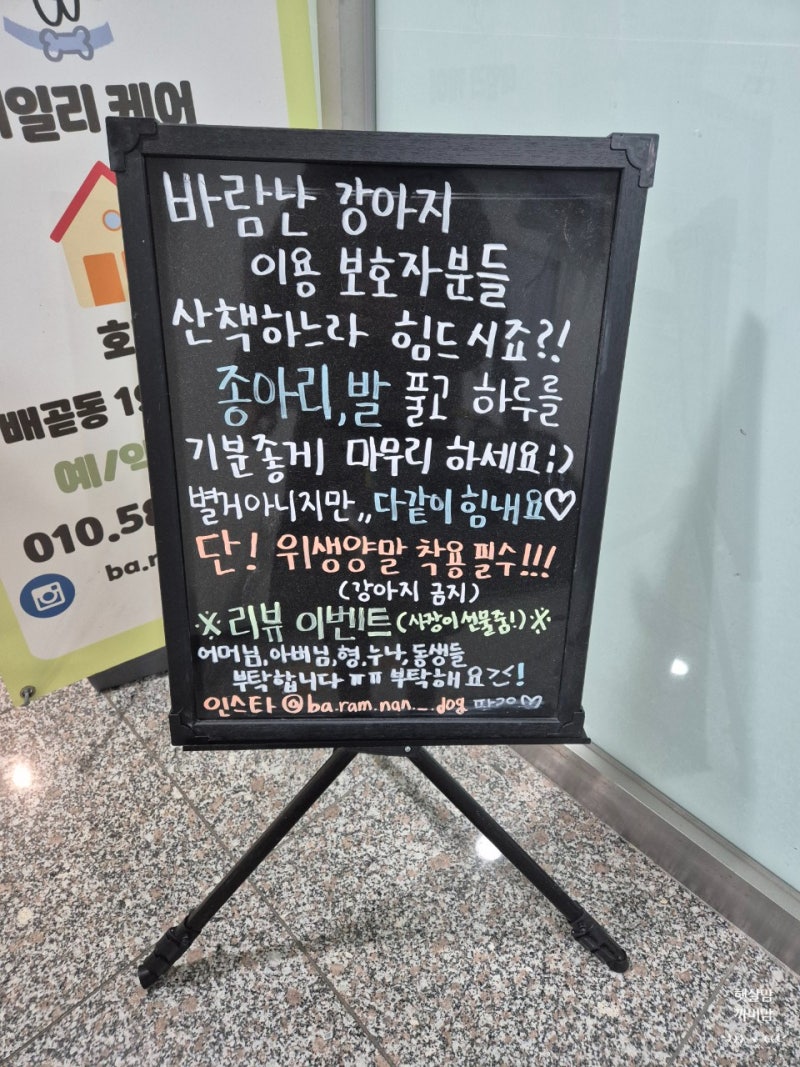 일리 케어
배곧동 19
010.58
ba.r
바람난 강아지
이용 보호자분들
산책하느라 힘드시죠?!
종아리,발 풀고 하루를
기분좋게 마무리 하세요:)
별거아니지만,, 다같이힘내요♡
단! 위생양말 착용필수!!!
(강아지 금지)
※리뷰 이벤트(사장이선물줌!)※
어머님,아버님,형.누나,동생들
부탁합니다ㅠㅠ 부탁해요
인스타 @ba.ram.nan._.dog
햇살맘